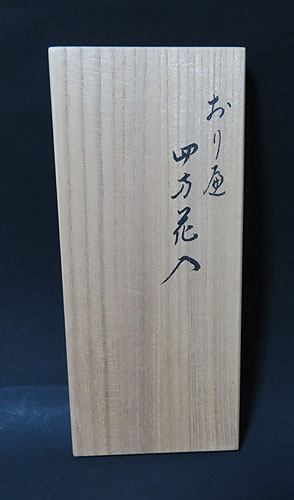 おりべ
四方花入